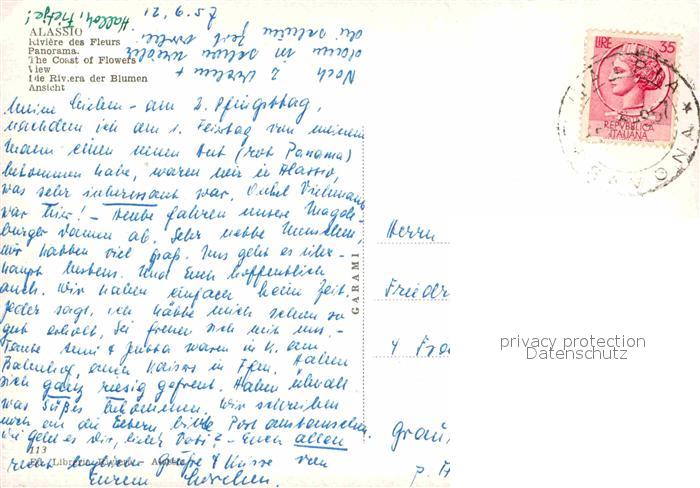 Halloh, Fietje!
ALASSIO
Rivière des Fleurs
Panorama.
The Coast of Flowers
View
Die Riviera der Blumen
Ansicht
Noch 2
in
Zeit
LIRE 35
REPVBBLICA
ITALIANA
SAVONA
Meine Lieben - am 2. Pfingsttag,
nachdem ich am 1. Feiertag von meinem
Mann einen neuen Hut (rot Panama)
bekommen habe, waren wir in Alassio,
was sehr interessant war. Onkel
war hier! - Heute fahren unsere Magde-
burger Damen ab. Sehr nette Menschen,
wir hatten viel Spaß. Uns geht es über-
haupt bestens. Und Euch hoffentlich
auch. Wir haben einfach keine Zeit.
Jeder sagt, ich hätte mich schon so
gut erholt, Sei freuen sich mit uns. -
Tante Anni & Jutta waren in K. am
Bahnhof, auch Kaisers in Ffm. Haben
sich ganz riesig gefreut. Haben überall
was Süßes bekommen. Wir schreiben
noch an die Eltern, bitte Post austauschen.
Wie geht es Dir, lieber Vati? - Euch allen
recht herzliche Grüße & Küsse von
Eurem
113
GARAMI
Herrn
Friedr
4 Fra
Grau
p. A
privacy protection
Datenschutz